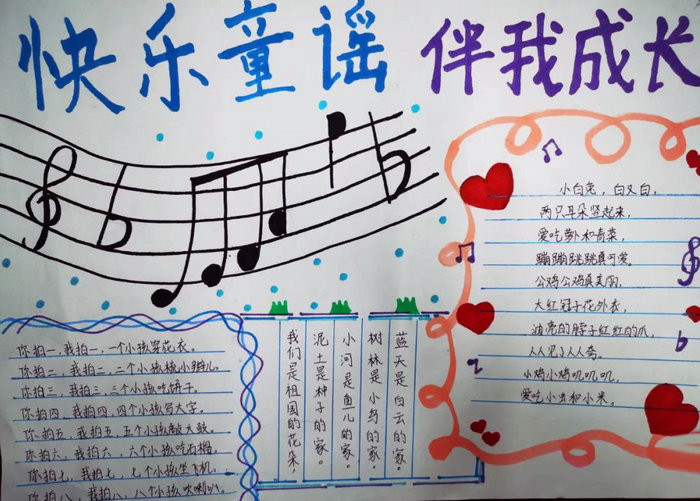 快乐童谣 伴我成长
小白兔,白又白,
两只耳朵竖起来,
爱吃萝卜和青菜,
蹦蹦跳跳真可爱。
公鸡公鸡真美丽,
大红冠子花外衣,
油亮的脖子红红的爪,
人人见了人人夸。
小鸡小鸡叽叽叽,
爱吃小虫和小米。
你拍一,我拍一,一个小孩穿花衣。
你拍二,我拍二,二个小孩梳小辫儿。
你拍三,我拍三,三个小孩吃饼干。
你拍四,我拍四,四个小孩写大字。
你拍五,我拍五,五个小孩敲大鼓。
你拍六,我拍六,六个小孩吃石榴。
你拍七,我拍七,七个小孩坐飞机。
你拍八,我拍八,八个小孩吹喇叭。
蓝天是白云的家。
树林是小鸟的家。
小河是鱼儿的家。
泥土是种子的家。
我们是祖国的花朵。